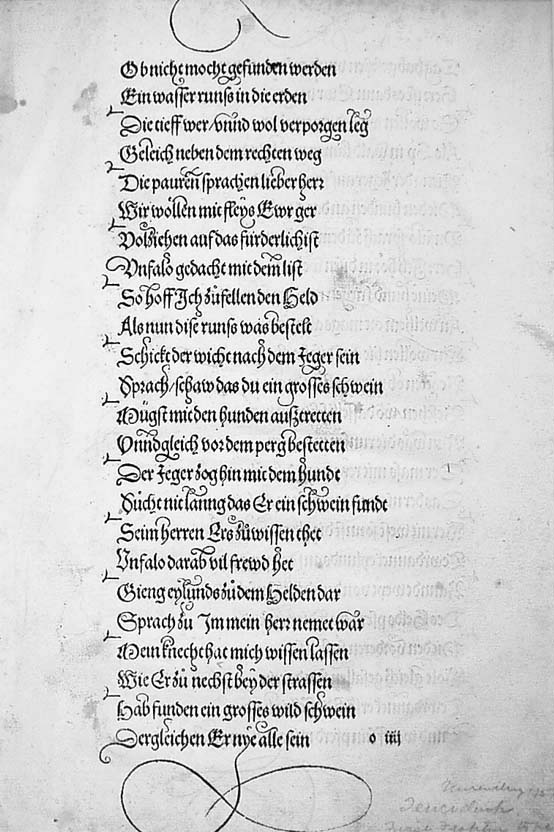 Ob nicht mocht gefunden werden
Ein wasser runſs in die erden
Die tieff wer/vnnd wol verporgen leg
Geleich neben dem rechten weg
Die pauren ſprachen lieber herr
Wir wöllen mit fleys Ewr ger
Volziehen auf das fürderlichiſt
Vnfalo gedacht mit dem liſt
So hoff Ich zůfellen den Held
Als nun diſe runſs was beſtelt
Schickt der wicht nach dem Jeger ſein
Sprach/ſchaw das du ein groſſes ſchwein
Mügſt mit den hunden auſztretten
Vnnd gleich vor dem perg beſtetten
Der Jeger zog hin mit dem hundt
Sücht nit lanng das Er ein ſchwein fundt
Seim herren Ers zůwiſſen thet
Vnfalo darab vil frewd het
Gieng eylunds zů dem Helden dar
Sprach zu Im mein herr nemet war
Mein knecht hat mich wiſſen laſſen
Wie Er zů nechſt bey der ſtraſſen
Hab funden ein groſſes wild ſchwein
Dergleichen Er nye alle ſein
o iiij